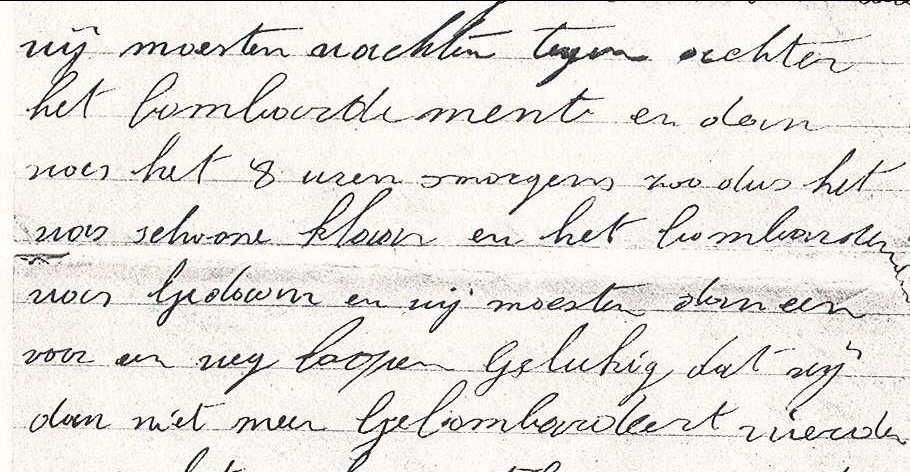 wij moesten wachten tegen achter
het bombardement en dan
was het 8 uren smorgens zoo dus het
was schoone klaar en het bombardement
was Gedaan en wij moesten dan een
voor een weg loopen Gelukig dat wij
dan niet meer Gebombardeert wierden